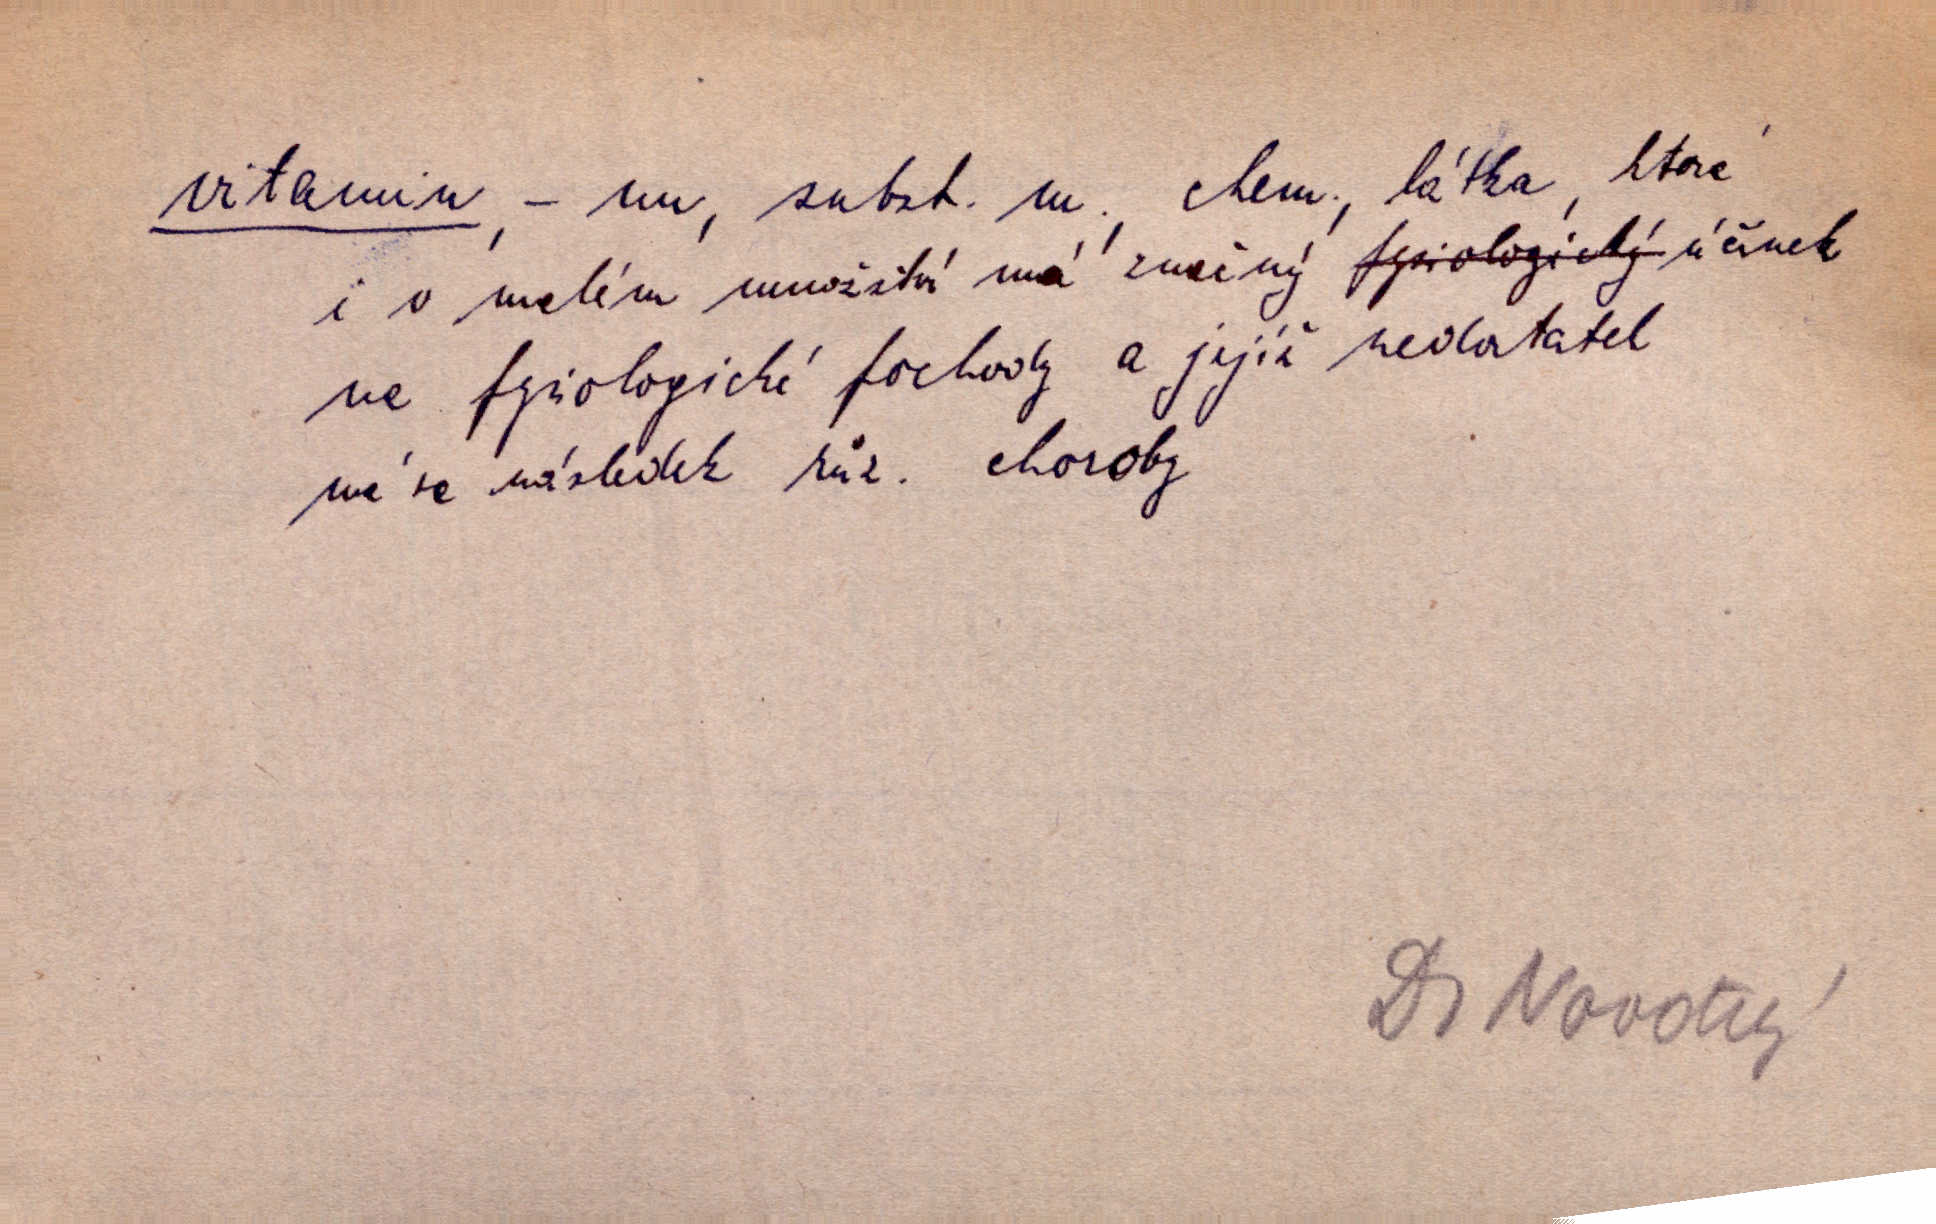 vitamin, -nu, subst. m., chem., látka, která
i v malém množství má značný ~~fysiologický~~ účinek
na fysiologické pochody a jejíž nedostatek
má za následek růz. choroby
Dr Novotný